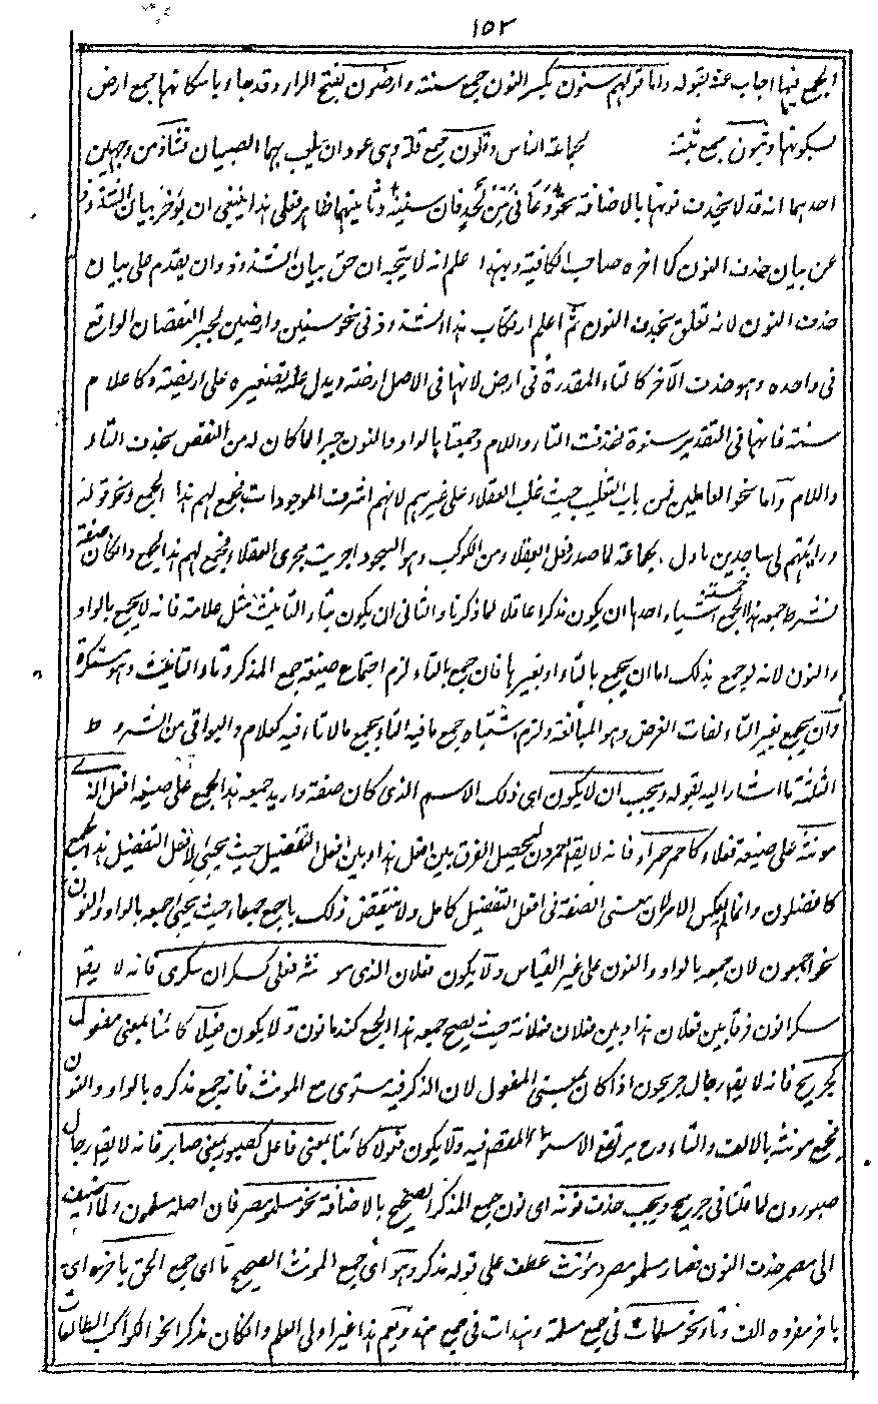 ١٥٢
الجمع فيها اجاب عنه بقوله واما قولهم سنون بكسر النون جمع سنة وارضون بفتح الراء وقد جاء باسكانها جمع ارض
بسكونها وثبون جمع ثبة لجماعة الناس وقلون جمع قلة وهى عودان يلعب بها الصبيان فشاذ من وجهين
احدهما انه قد لا يحذف نونها بالاضافة نحو دعانى من نجد فان سنينه وثانيهما ظاهر فعلى هذا ينبغى ان يؤخر بيان الشذوذ
عن بيان حذف النون كما اخره صاحب الكافية وبهذا علم انه لا يتجه ان حق بيان الشذوذ وان يقدم على بيان
حذف النون لانه تعلق بحذف النون ثم اعلم ارتكاب هذا الشذوذ فى نحو سنين وارضين لجبر النقصان الواقع
فى واحده وهو حذف الآخر كالتاء المقدرة فى ارض لانها فى الاصل ارضة ويدل عليه تصغيره على اريضة وكاعلام
سنة فانها فى التقدير سنوة فحذفت التاء واللام وجمعتا بالواو والنون جبرا لما كان له من النقص بحذف التاء
واللام واما نحو العاملين فمن باب التغليب حيث غلب العقلاء على غيرهم لانهم اشرف الموجودات فجمع لهم هذا الجمع ونحو قوله
ورايتهم لى ساجدين ماول بجماعة لما صدر فعل العقلاء من الكوكب وهو السجود اجريت مجرى العقلاء فجمع لهم هذا الجمع وان كان صفة
فشرط جمعه هذا الجمع خمسة اشياء احدها ان يكون مذكرا عاقلا لما ذكرنا والثانى ان يكون بتاء التانيث مثل علامة فانه لا يجمع بالواو
والنون لانه لو جمع بذلك اما ان يجمع بالتاء او بغيرها فان جمع بالتاء لزم اجتماع صيغة جمع المذكر وتاء التانيث وهو مستكره
وان يجمع بغير التاء لفات الغرض وهو المبالغة ولزم اشتباه جمع ما فيه التاء بجمع ما لا تاء فيه كعلام والبواقى من الشروط
الثلثة ما اشار اليه بقوله ويجب ان لا يكون اى ذلك الاسم الذى كان صفة واريد جمعه هذا الجمع على صيغة افعل الذى
مونثه على صيغة فعلاء كاحمر حمراء فانه لا يقال احمرون لتحصيل الفرق بين افعل هذا وبين افعل التفضيل حيث يجئ لافعل التفضيل هذا الجمع
كافضلون وانما لم يعكس الامر لان معنى الصفة فى افعل التفضيل كامل ولا ينتقض ذلك باجمع جمعاء حيث يجئ جمعه بالواو والنون
نحو اجمعون لان جمعه بالواو والنون على غير القياس ولا يكون فعلان الذى مونثه فعلى كسكران سكرى فانه لا يقال
سكرانون فرقا بين فعلان هذا وبين فعلان فعلانة حيث يصح جمعه هذا الجمع كندمانون ولا يكون فعيلا كائنا بمعنى مفعول
كجريح فانه لا يقال رجال جريحون اذا كان بمعنى المفعول لان المذكر فيه مستوى مع المونث فانه جمع مذكره بالواو والنون
فجمع مونثه بالالف والتاء وح يرتفع الاستواء المقصود فيه ولا يكون فعولا كائنا بمعنى فاعل كصبور بمعنى صابر فانه لا يقال رجال
صبورون لما قلنا فى جريح ويجب حذف نونه اى نون جمع المذكر الصحيح بالاضافة نحو مسلمو مصر فان اصله مسلمون ولما اضيف
الى مصر حذف النون فصار مسلمو مصر ومونث عطف على قوله مذكر وهو اى جمع المونث الصحيح ما اى جمع الحق باخره اى
باخر مفرده الف وتاء نحو مسلمات فى جمع مسلمة وهندات فى جمع هند ويعم هذا غير اولى العلم وان كان مذكرا نحو الكواكب الطالعات